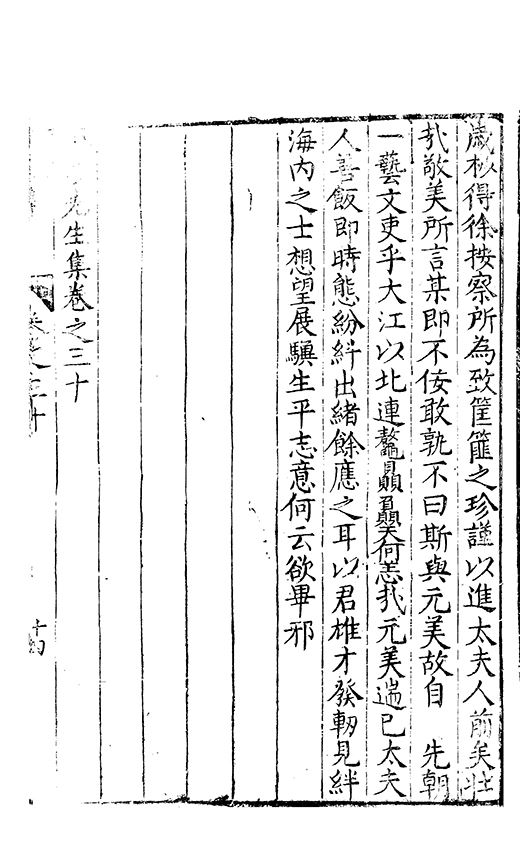 歲杪得徐按察所為致筐篚之珍謹以進太夫人前矣壯
哉敬美所言某即不佞敢孰不曰斯與元美故自　先朝
一藝文吏乎大江以北連鼇贔屭何恙哉元美遄已太夫
人善飯即時態紛紏出緒餘應之耳以君雄才發軔見絆
海內之士想望展驥生平志意何云欲畢邪
先生集卷之三十